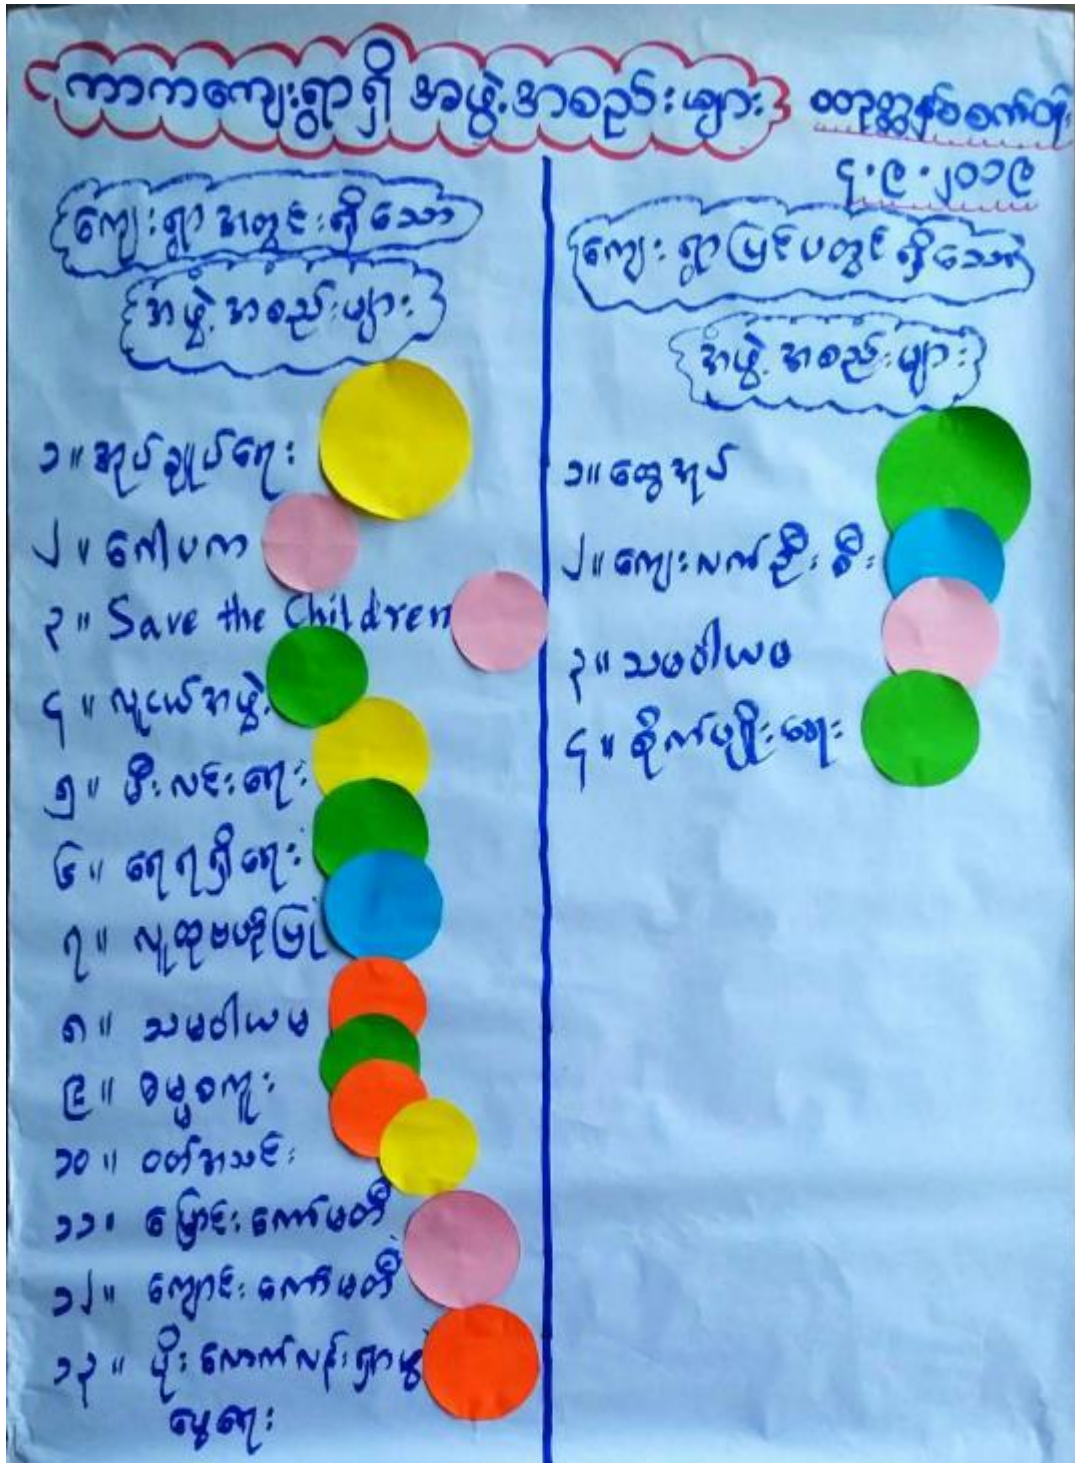 ကာကကျေးရွာရှိ အဖွဲ့အစည်းများ
၄.၉.၂၀၁၉
ကျေးရွာအတွင်းရှိသော
အဖွဲ့အစည်းများ
၁။ အုပ်ချုပ်ရေး
၂။ ဂေါပက
၃။ Save the Children
၄။ လူငယ်အဖွဲ့
၅။ မီးလင်းရေး
၆။ ရေရရှိရေး
၇။ လူထုဗဟိုပြု
၈။ သမဝါယမ
၉။ ဓမ္မစကူး
၁၀။ ဝတ်အသင်း
၁၁။ မြောင်းကော်မတီ
၁၂။ ကျောင်းကော်မတီ
၁၃။ ပိုးလောက်လန်းရှာဖွေ
မွေရေး
ကျေးရွာပြင်ပတွင်ရှိသော
အဖွဲ့အစည်းများ
၁။ ထွေအုပ်
၂။ ကျေးလက်ဦးစီး
၃။ သမဝါယမ
၄။ စိုက်ပျိုးရေး